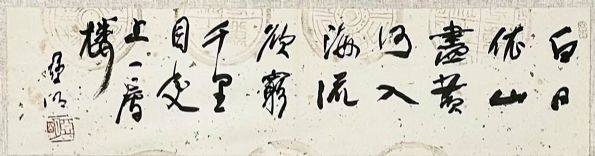 白日
依山
盡黄
河入
海流
欲窮
千里
目更
上一層
樓